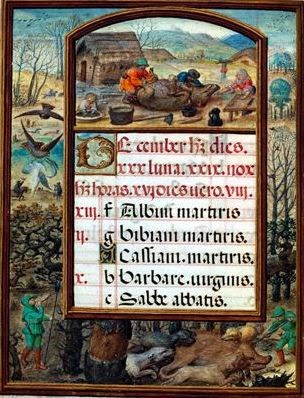 December hz dies.
xxx luna. xxix. nox
hz horas. xvi dies uero. viii.
xiii. f Albini martiris
ii. g Bibiani martiris.
A Cassiani. martiris.
x. b Barbare. uirginis.
c Sabbe abbatis.